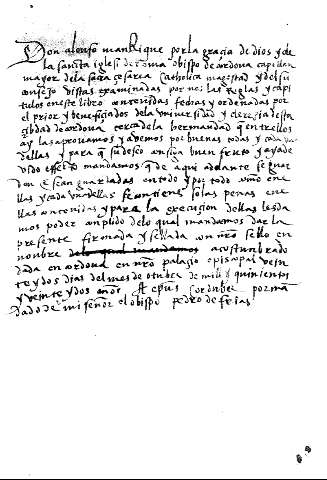 Don alonso manrrique por la graçia de dios y de
la santa iglesia de rroma obispo de cordova capellan
mayor de la sacra cesarea catholica magestad y del su
consejo vistas y examinadas por nos las Reglas y capi
tulos en este libro contenidas fechas y ordenadas por
el prior y beneficiados de la vniversidad y clerezia desta
çibdad de cordova cerca de la hermandad q entrellos
ay las aprovamos y avemos por buenas todas y cada vna
dellas y para q su deseo consiga buen fruto y aya de
vido effecto mandamos q de aqui adelante se guar
den e sean guardadas en todo y por todo como en e
llas y cada vna dellas se contiene so las penas en e
llas contenidas y para la execuçion dellas les da
mos poder conplido de lo qual mandamos dar la
presente firmada y sellada con nro sello en
nonbre acostunbrado
dada en cordova en nro palaçio episcopal vein
te y dos dias del mes de otubre de mill e quinientos
y veynte y dos años A epus cordubeñ por man
dado de mi señor el obispo pedro de frias